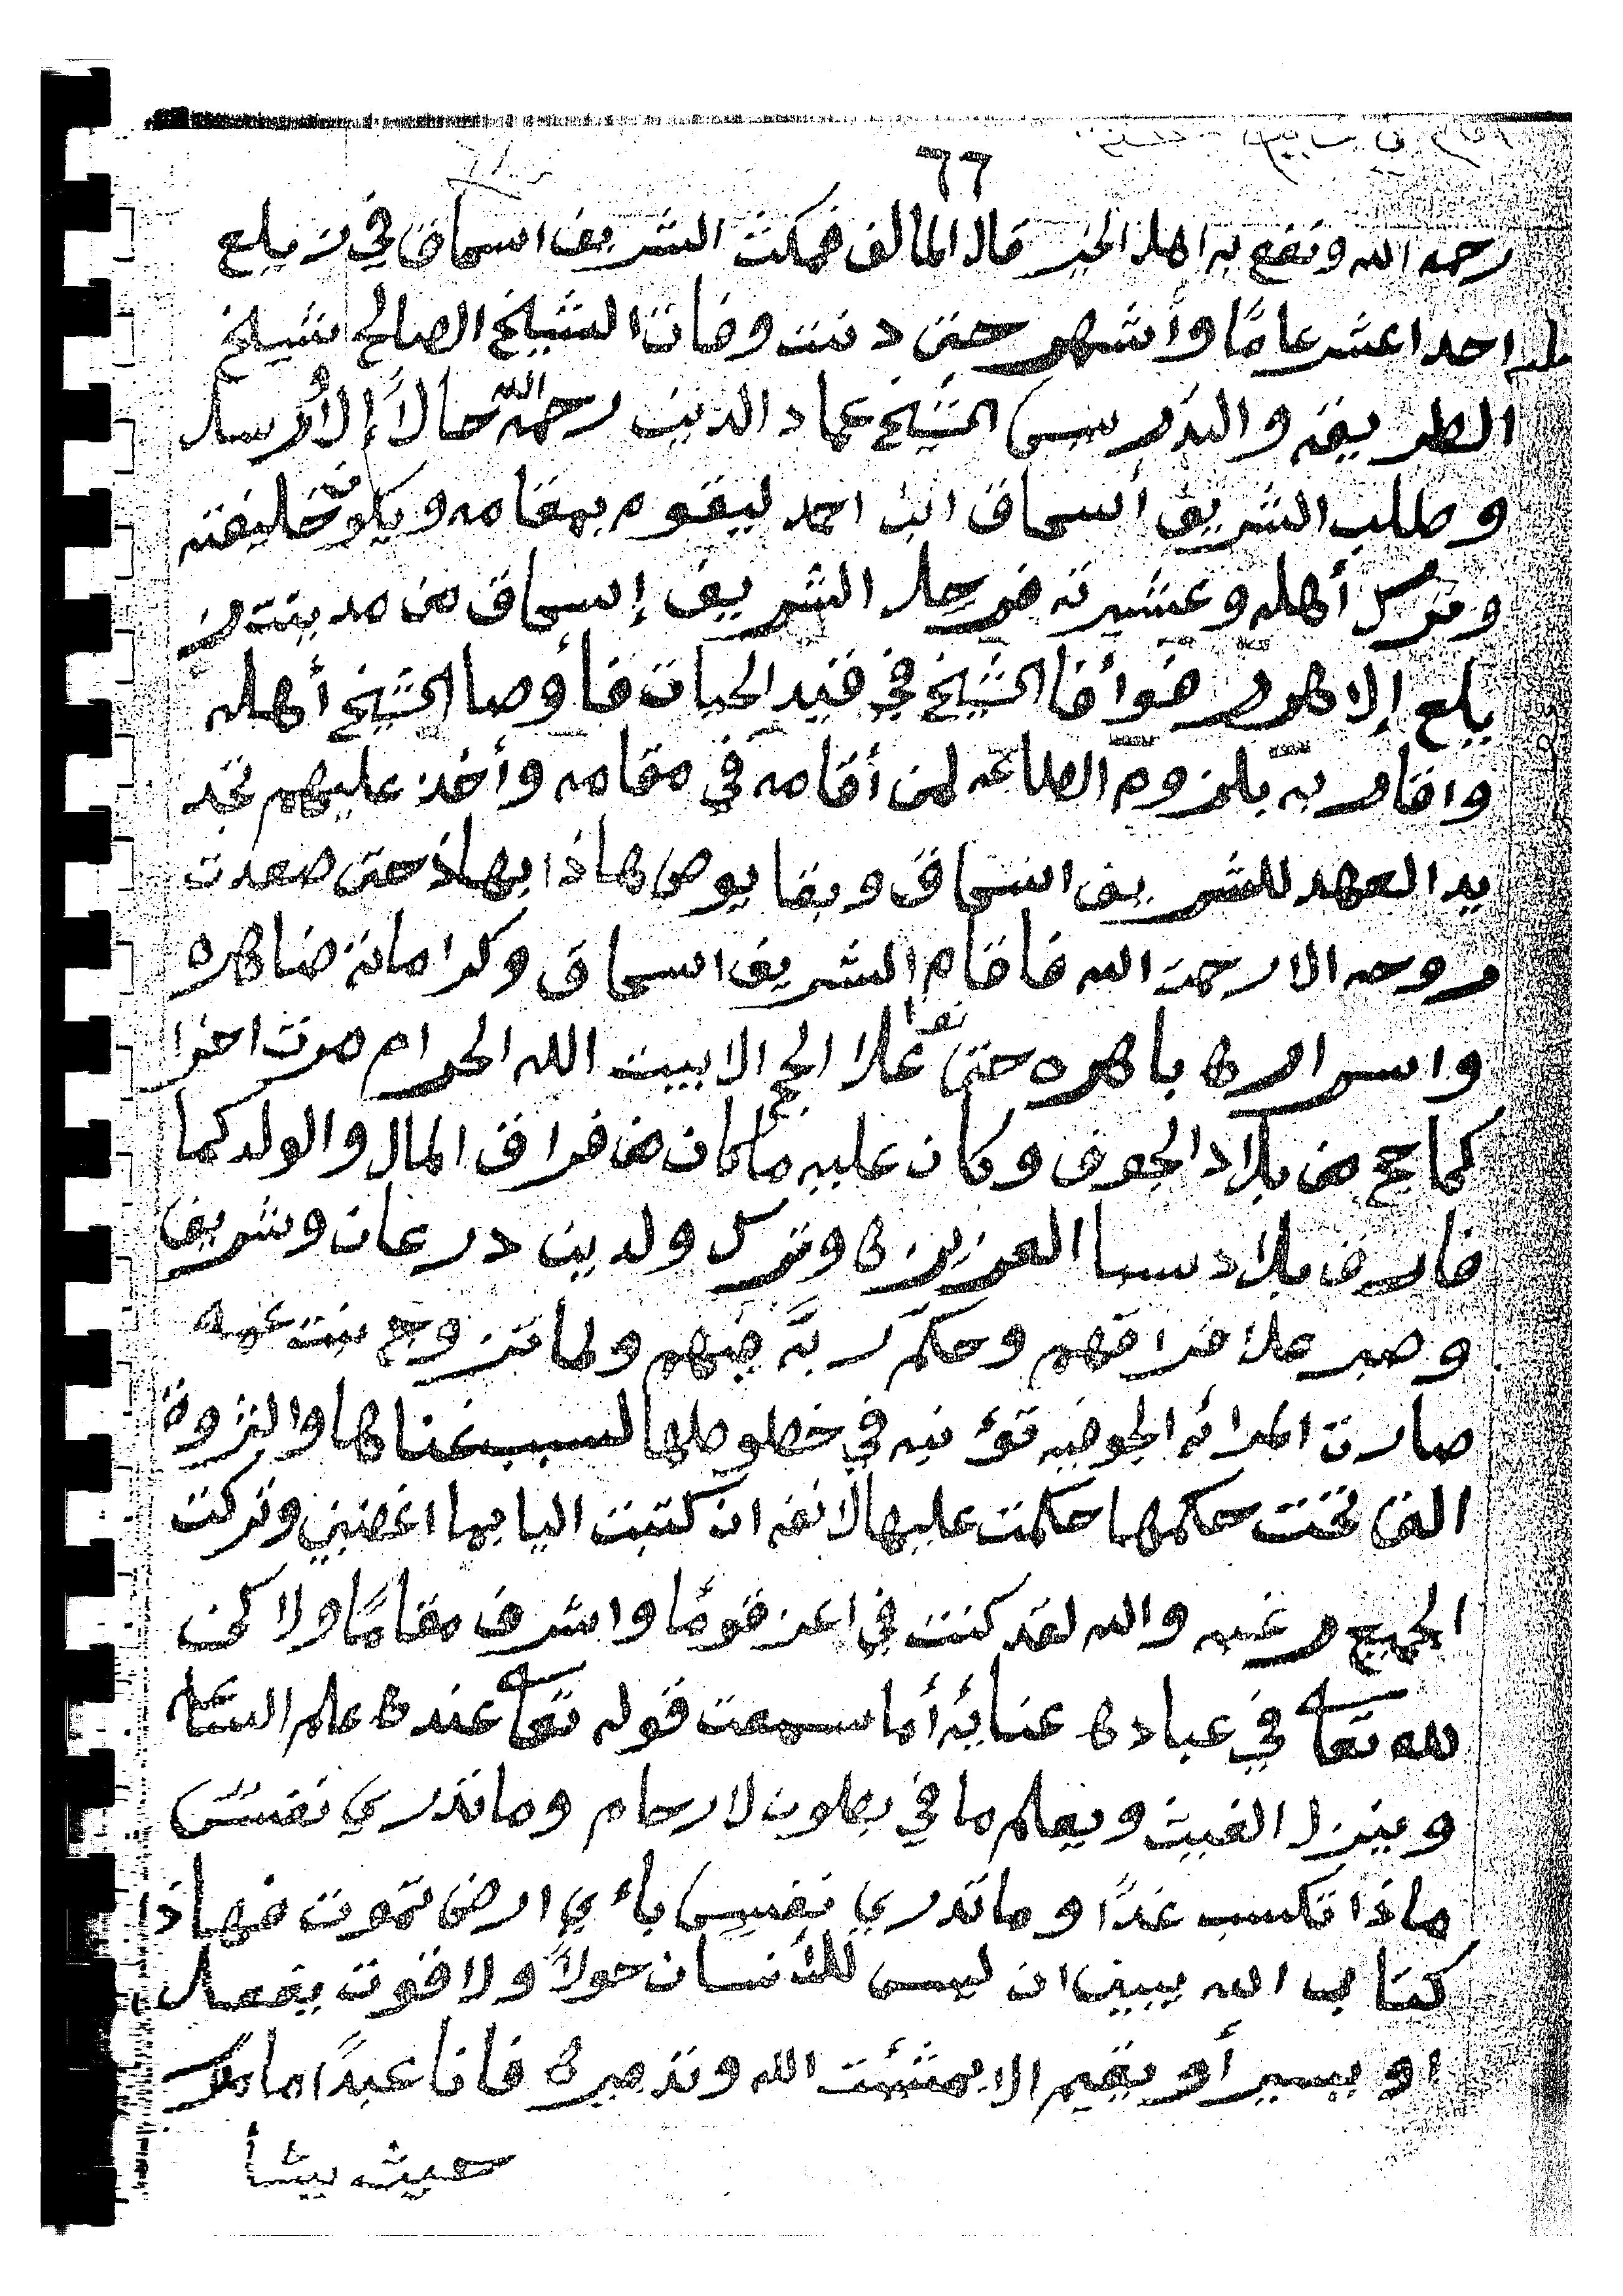 ٦٦
رحمه الله ونفع به اهل الخير قال المالف فمكث الشريف اسحاق في زيلع
احدا عشر عامًا وأشهر حتى دنت وفات الشيخ الصالح شيخ
الطريقه والتدريس الشيخ عماد الدين رحمة الله حالاً إلا أرسل
وطلب الشريف أسحاق ابن احمد ليقوم بمقامه ويكون خليفته
وترك أهله وعشيرته فرحل الشريف إسحاق من مدينت ز
يلع إلا هرر فوأفا الشيخ في قيد الحيات فأوصا الشيخ أهله
واقاربه بلزوم الطاعه لمن أقامه في مقامه وأخذ عليهم تجد
يد العهد للشريف اسحاق وبقا يوصي هاذا بهاذ حتى صعدت
روحه الا رحمة الله فاقام الشريف اسحاق وكراماته ضاهره
واسراره باهره حتى نوا علا الحج الا بيت الله الحرام مرت اخرا
كما حج من بلاد الجوف وكان عليه ما كان من فراق المال والولد كما
فارق بلاد سبا العزيزه وترك ولدين درعان وشريف
وصبر علا فراقهم وحكم ربه فيهم ولما تزوج بنت عمه
صارت المرائه الجوفيه تؤنبه في خطوطها لسبب غناها والثروة
التي تحت حكمها حكمت عليها لانفه ان كتبت اليا بها اغضبني وتركت
الجميع رغبه والله لقد كنت في اعز قومًا واشرف مقامًا ولا كن
لله تعا في عباده عنايه أما سمعت قوله تعا عنده علم الساعه
وينزل الغيث ويعلم ما في بطون لارحام وما تدري نفسٌ
ماذا تكسب غدًا وما تدري نفس بائي ارض تموت فهاذا
كتاب الله يبين ان ليس للأنسان حولاً ولا قوت يفعل
او يسير أو يقيم الا بمشئت الله وتدبيره فانا عبدًا مامك
حيث يشأ